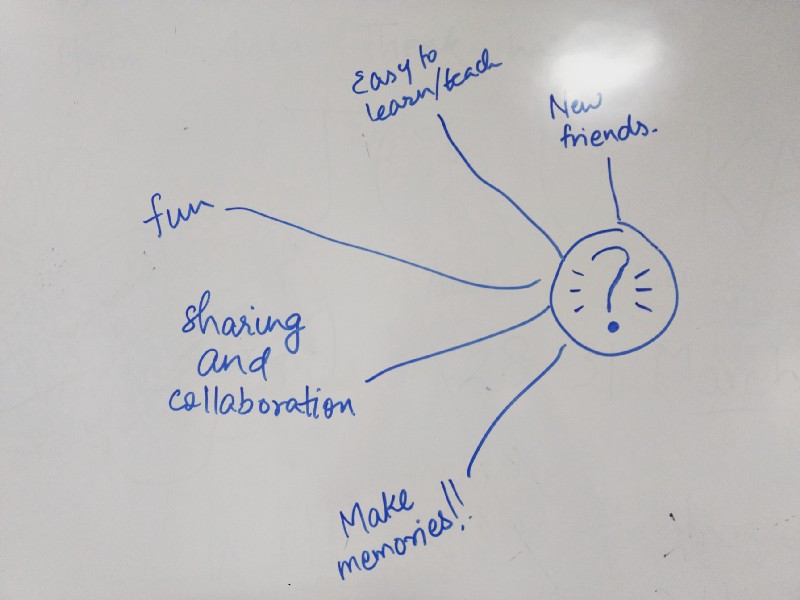 Easy to
learn/teach
New
friends.
fun
?
sharing
and
collaboration
Make
memories!!